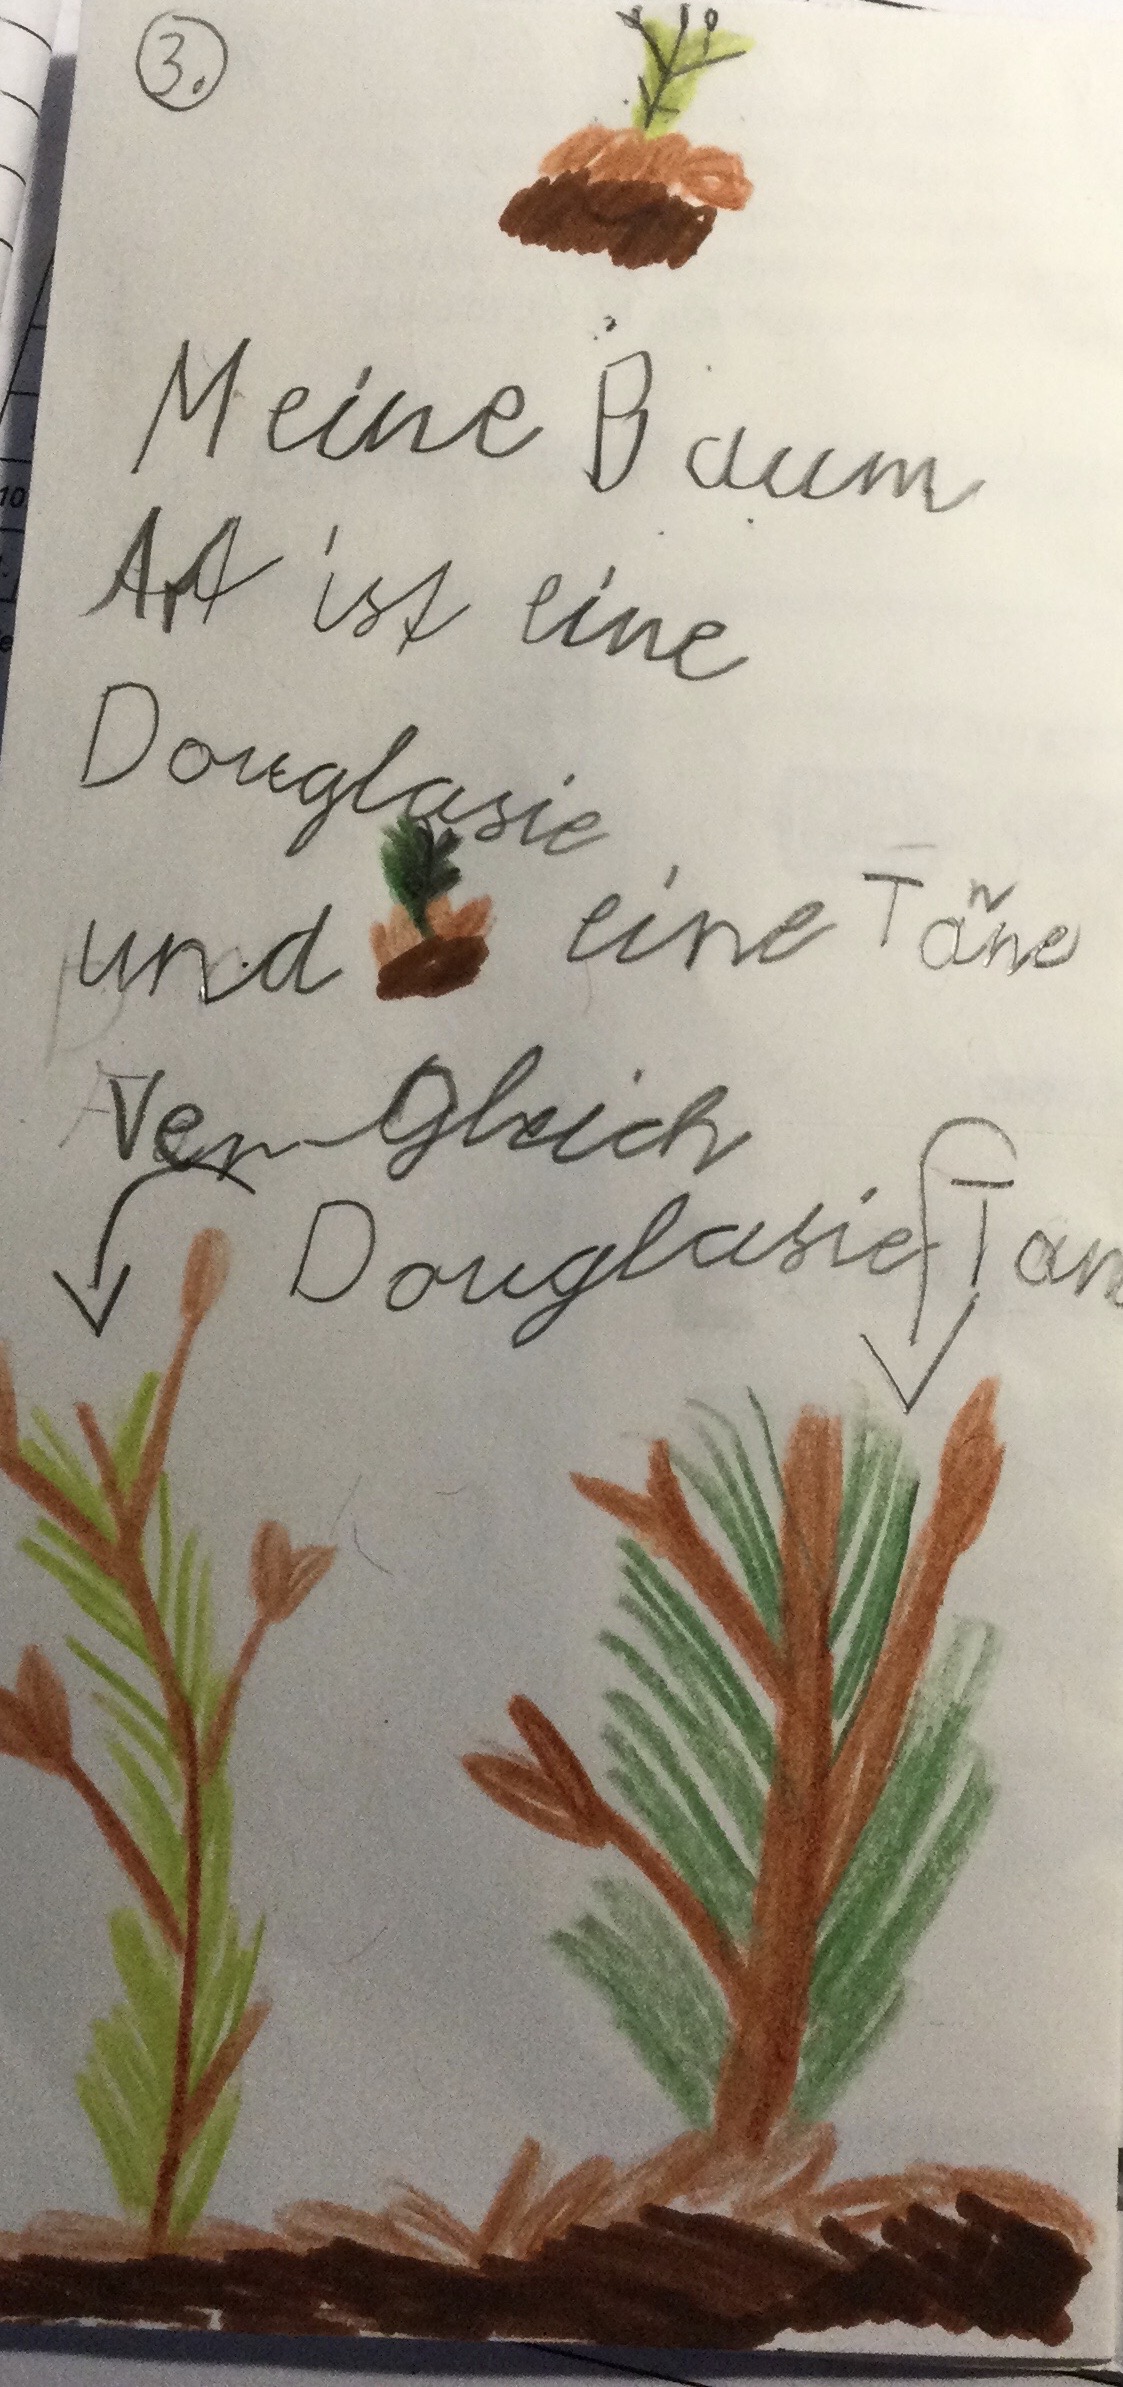 3.
Meine Baum
Art ist eine
Douglasie
und eine Täne
Ver Gleich
Douglasie Tan
10